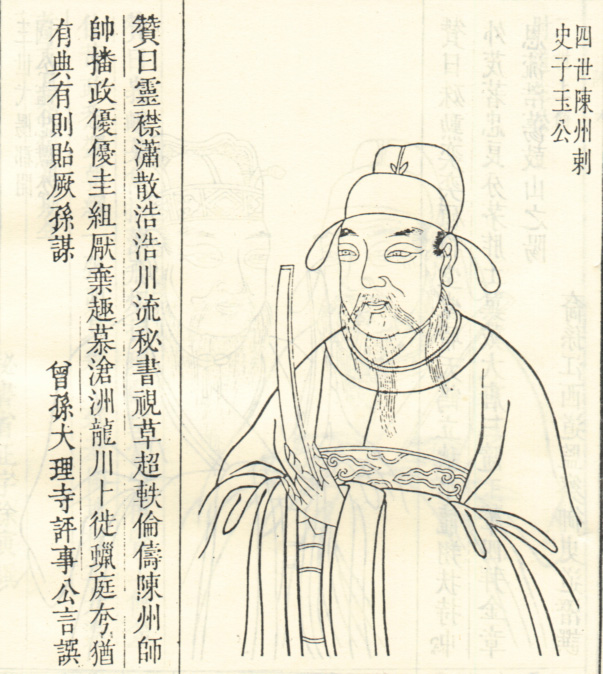 四世陳州刺
史子玉公
贊曰靈襟瀟散浩浩川流秘書視草超軼倫儔陳州師
帥播政優優圭組厭棄趣慕滄洲龍川卜徙蠟庭冭猶
有典有則貽厥孫謀
曾孫大理寺評事公言譔